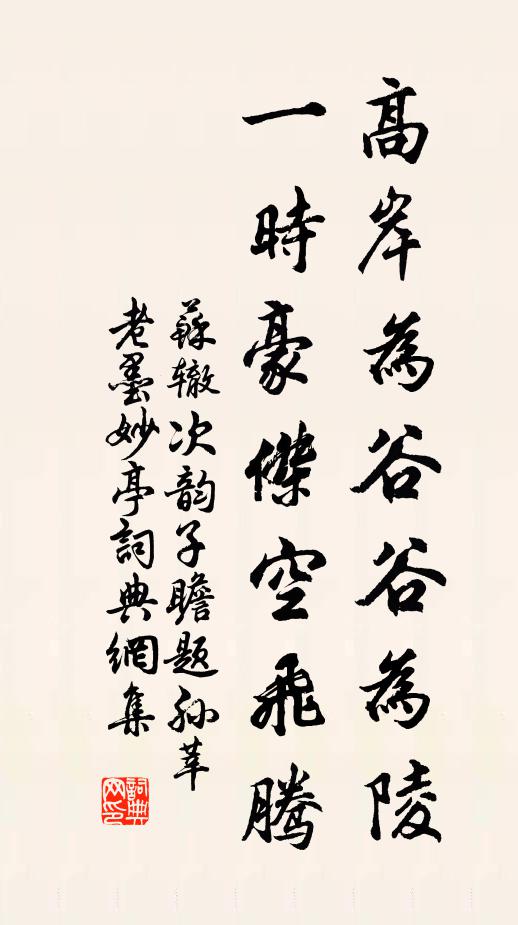 高岸為谷谷為陵
一時豪傑空飛騰
蘇辙次韵子瞻题孙莘
老墨妙亭詞典網集
詞典网印